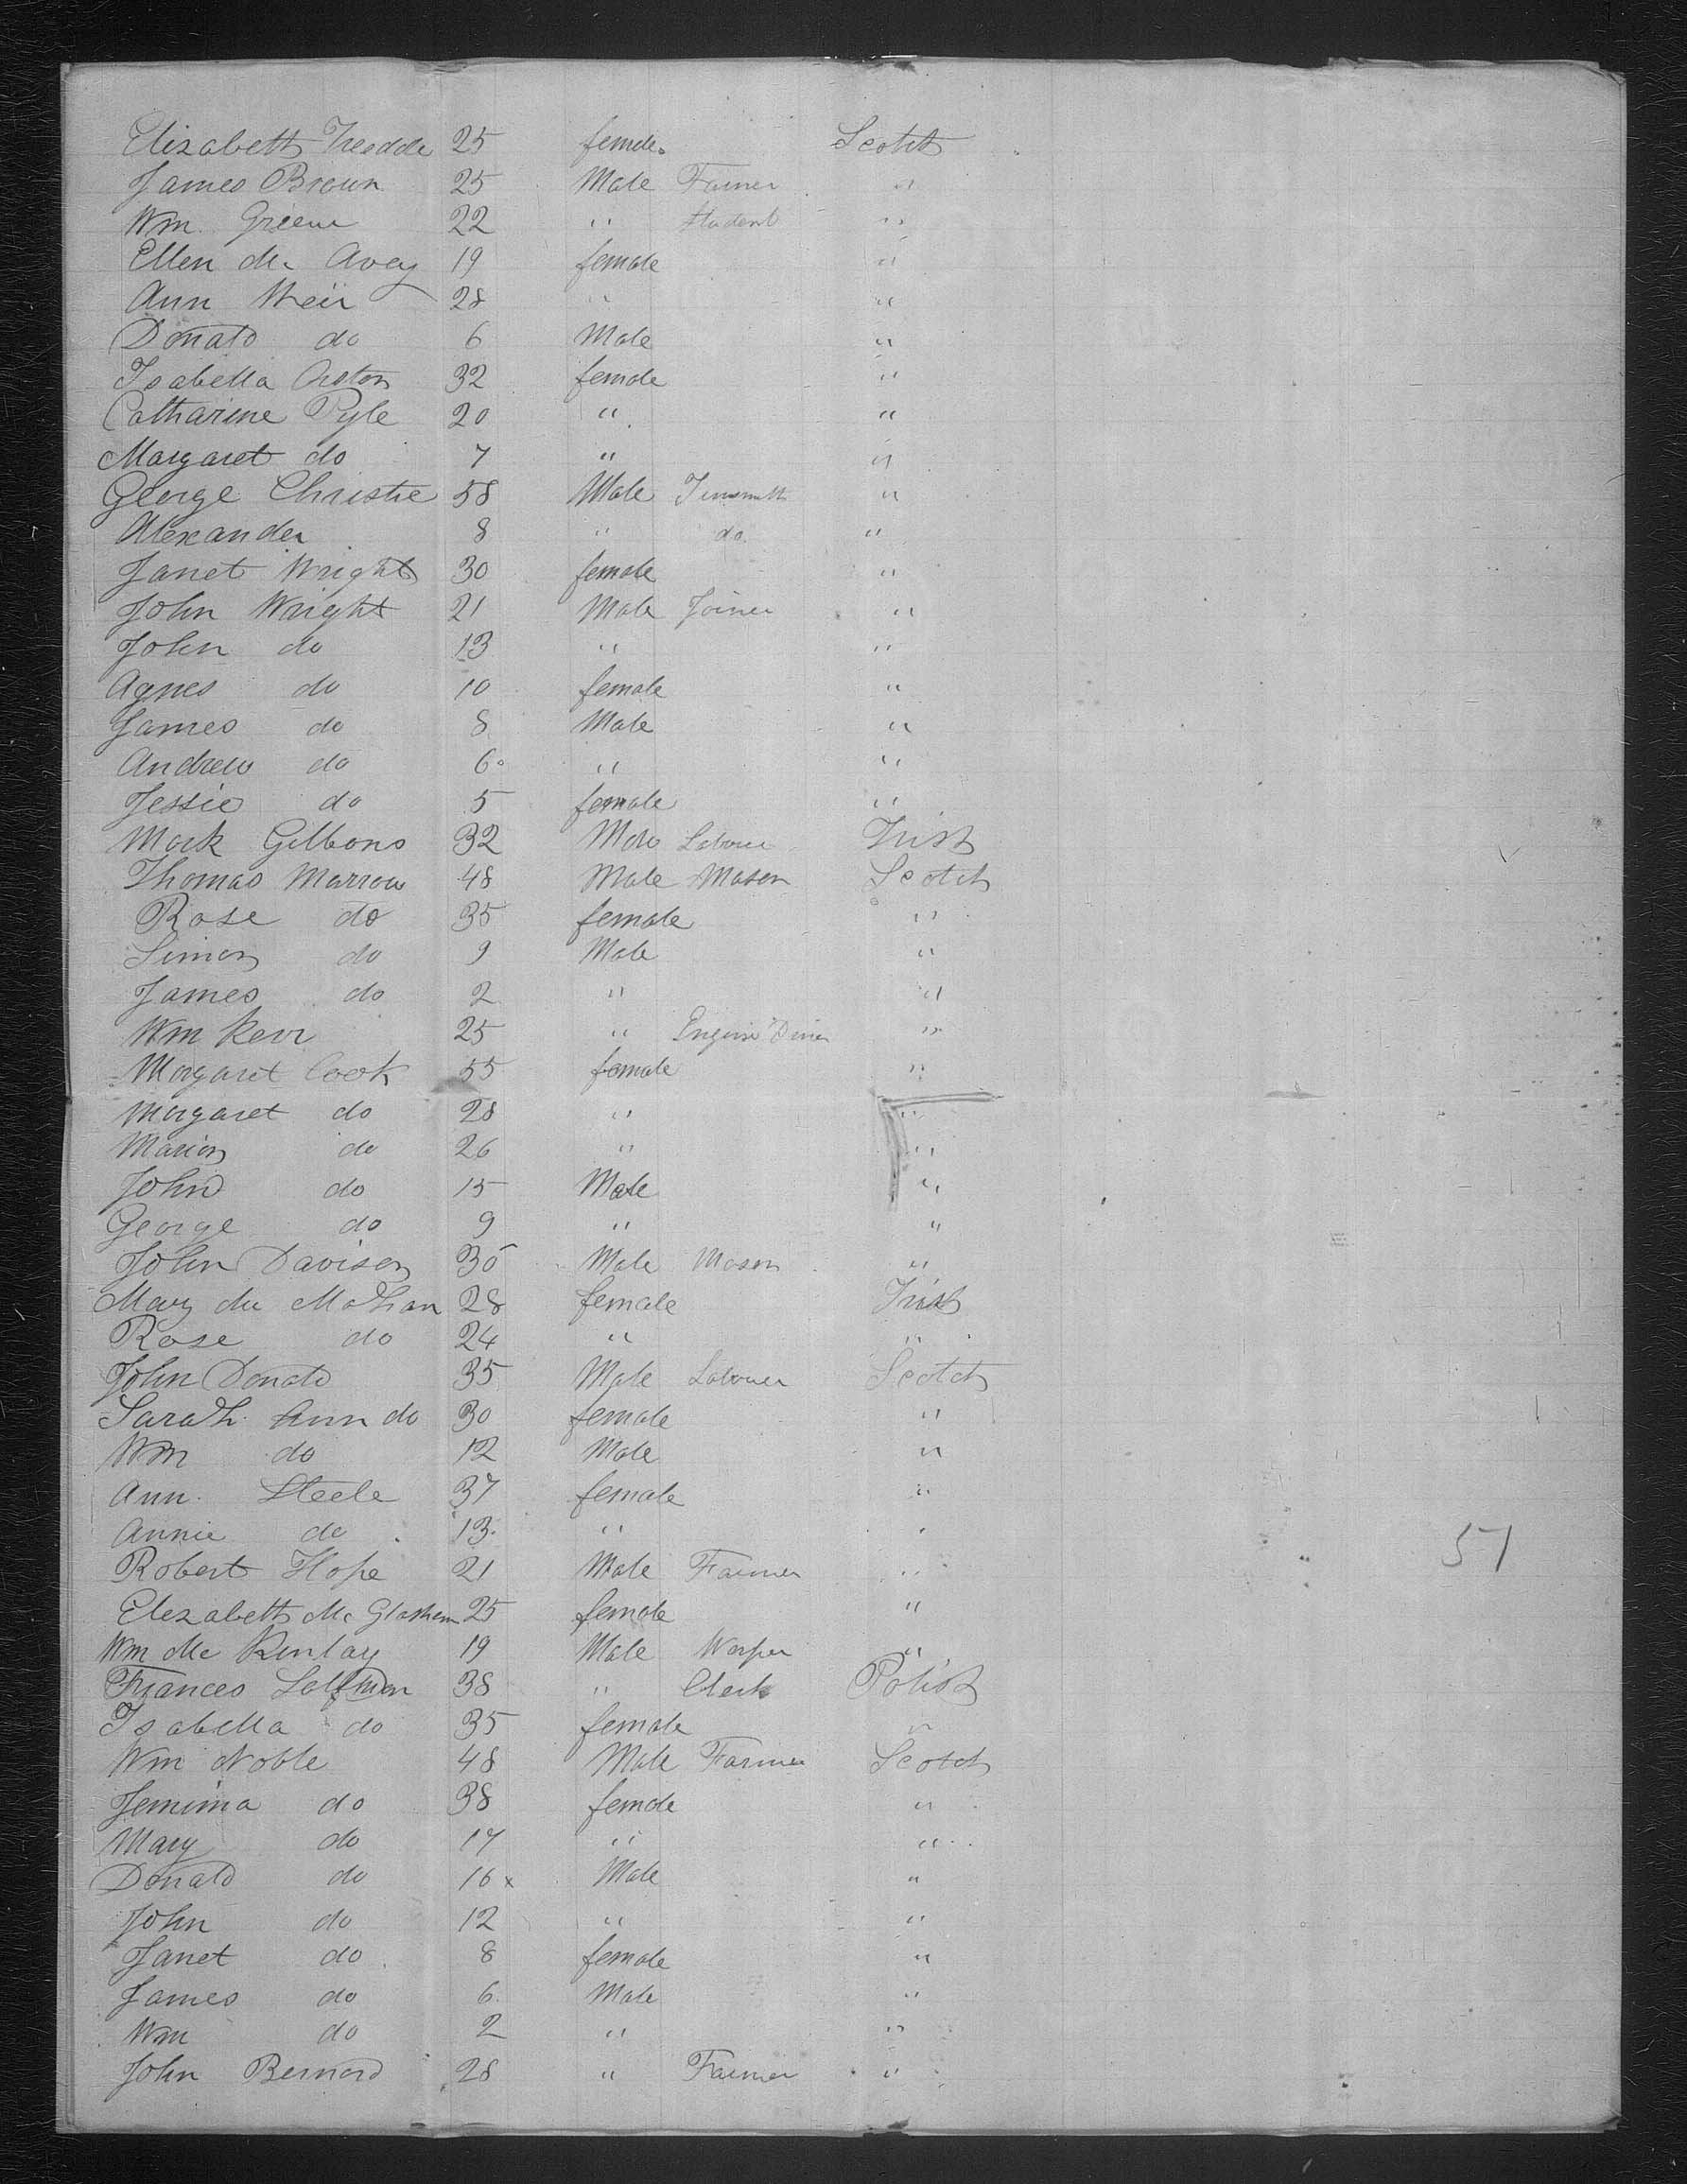 Elizabeth 25 female Scotch
James Brown 25 Male Farmer "
Wm. Greene 22 " Student "
Ellen Mc Avey 19 female "
Ann Weir 28 " "
Donald do 6 Male "
Isabella 32 female "
Catharine Pyle 20 " "
Margaret do 7 " "
George Christie 58 Male Tinsmith "
Alexander 8 " do. "
Janet Wright 30 female "
John Wright 21 Male Joiner "
John do 13 " "
Agnes do 10 female "
James do 8 Male "
Andrew do 6 " "
Jessie do 5 female "
Mark Gibbons 32 Male Labourer Irish
Thomas Marrow 48 Male Mason Scotch
Rose do 35 female "
Simon do 9 Male "
James do 2 " "
Wm Kerr 25 " Engine Driver "
Margaret Cook 55 female "
Margaret do 28 " "
Marion do 26 " "
John do 15 Male "
George do 9 " "
John Davison 30 Male Mason "
Mary Mc Mahan 28 female Irish
Rose do 24 " "
John Donald 35 Male Labourer Scotch
Sarah Ann do 30 female "
Wm do 12 Male "
Ann. Steele 37 female "
Annie do 13 " "
Robert Hope 21 Male Farmer "
Elezabeth Mc Glashen 25 female "
Wm Mc Kinlay 19 Male Warper "
Frances 38 " Clerk Polish
Isabella do 35 female "
Wm Noble 48 Male Farmer Scotch
Jemima do 38 female "
Mary do 17 " "
Donald do 16 x Male "
John do 12 " "
Janet do 8 female "
James do 6 Male "
Wm do 2 " "
John Bernard 28 " Farmer "
51